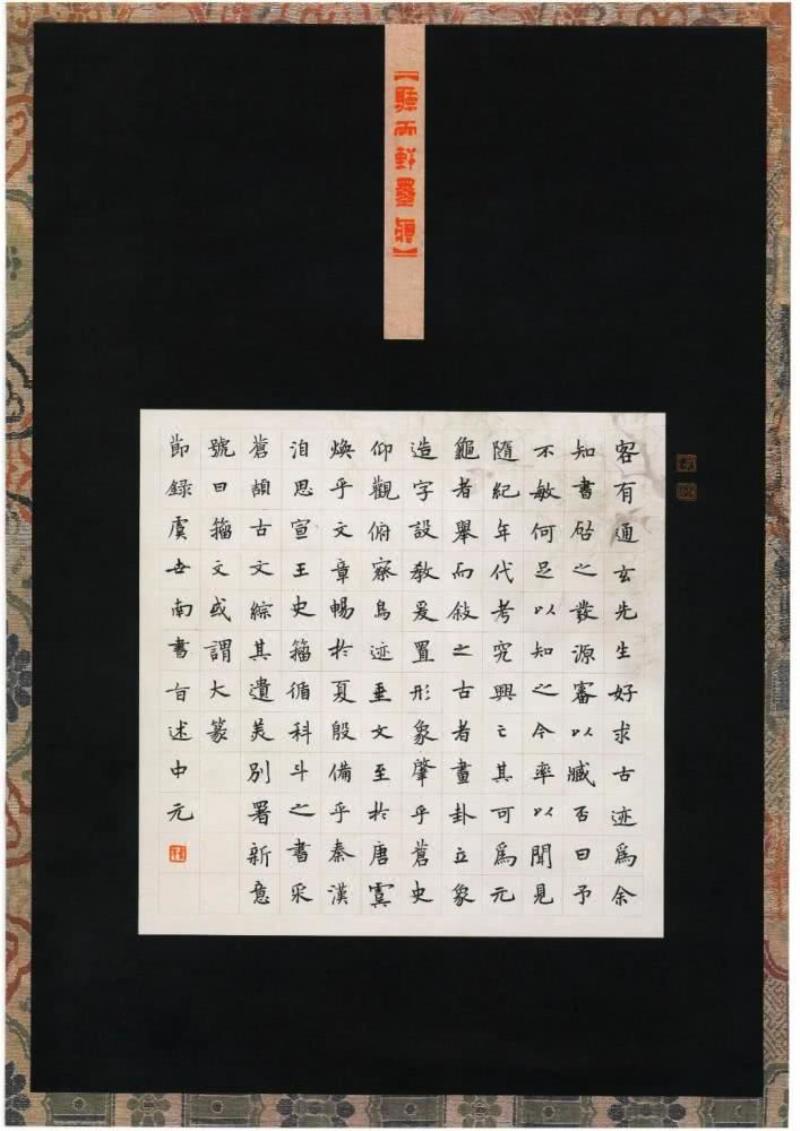 【聽雨軒墨韻】
客有通玄先生好求古迹爲余
知書砧之發源審以臧否曰予
不敏何足以知之今率以聞見
隨紀年代考究興亡其可爲元
龜者舉而敍之古者畫卦立象
造字設教爰置形象肇乎蒼史
仰觀俯察鳥迹垂文至於唐虞
煥乎文章暢於夏殷備乎秦漢
洎思宣王史籀循科斗之書采
蒼頡古文綜其遺美別署新意
號曰籀文或謂大篆
節録虞世南書旨述中元